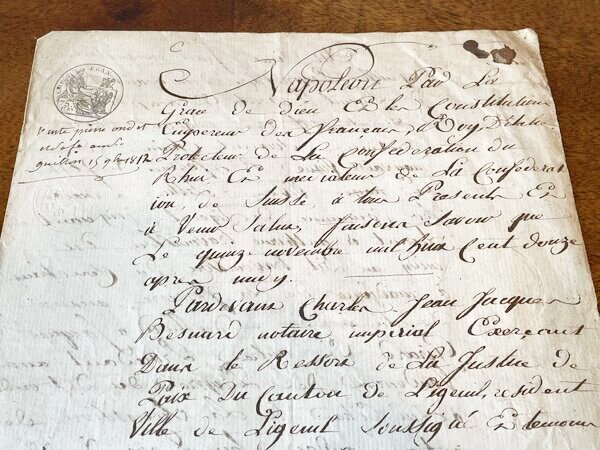 Napoleon Par La
Grace de Dieu Et les Constitutions
Empereur des français, Roy D'italie
Protecteur de La Confederation du
Rhin Et mediateur de La Confederat
ion, de Suisse à tous Presents Et
à Venir Salut, faisons Savoir que
Le quinze novembre mil huit Cent douze
apres midy.
Pardevant Charles, Jean Jacques
Besnard notaire imperial Exerçant
Dans le Ressort de La Justice de
Paix Du Canton de Ligueil, resident
Ville de Ligueil Soussigné Et temoins
Vente pierre
15 9bre 1812